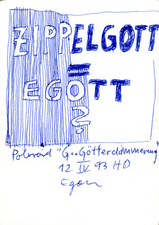 ZIPPELGOTT
=
EGOTT
?
"G..Götterdämmerung"
12 IV 93 HD
Egon